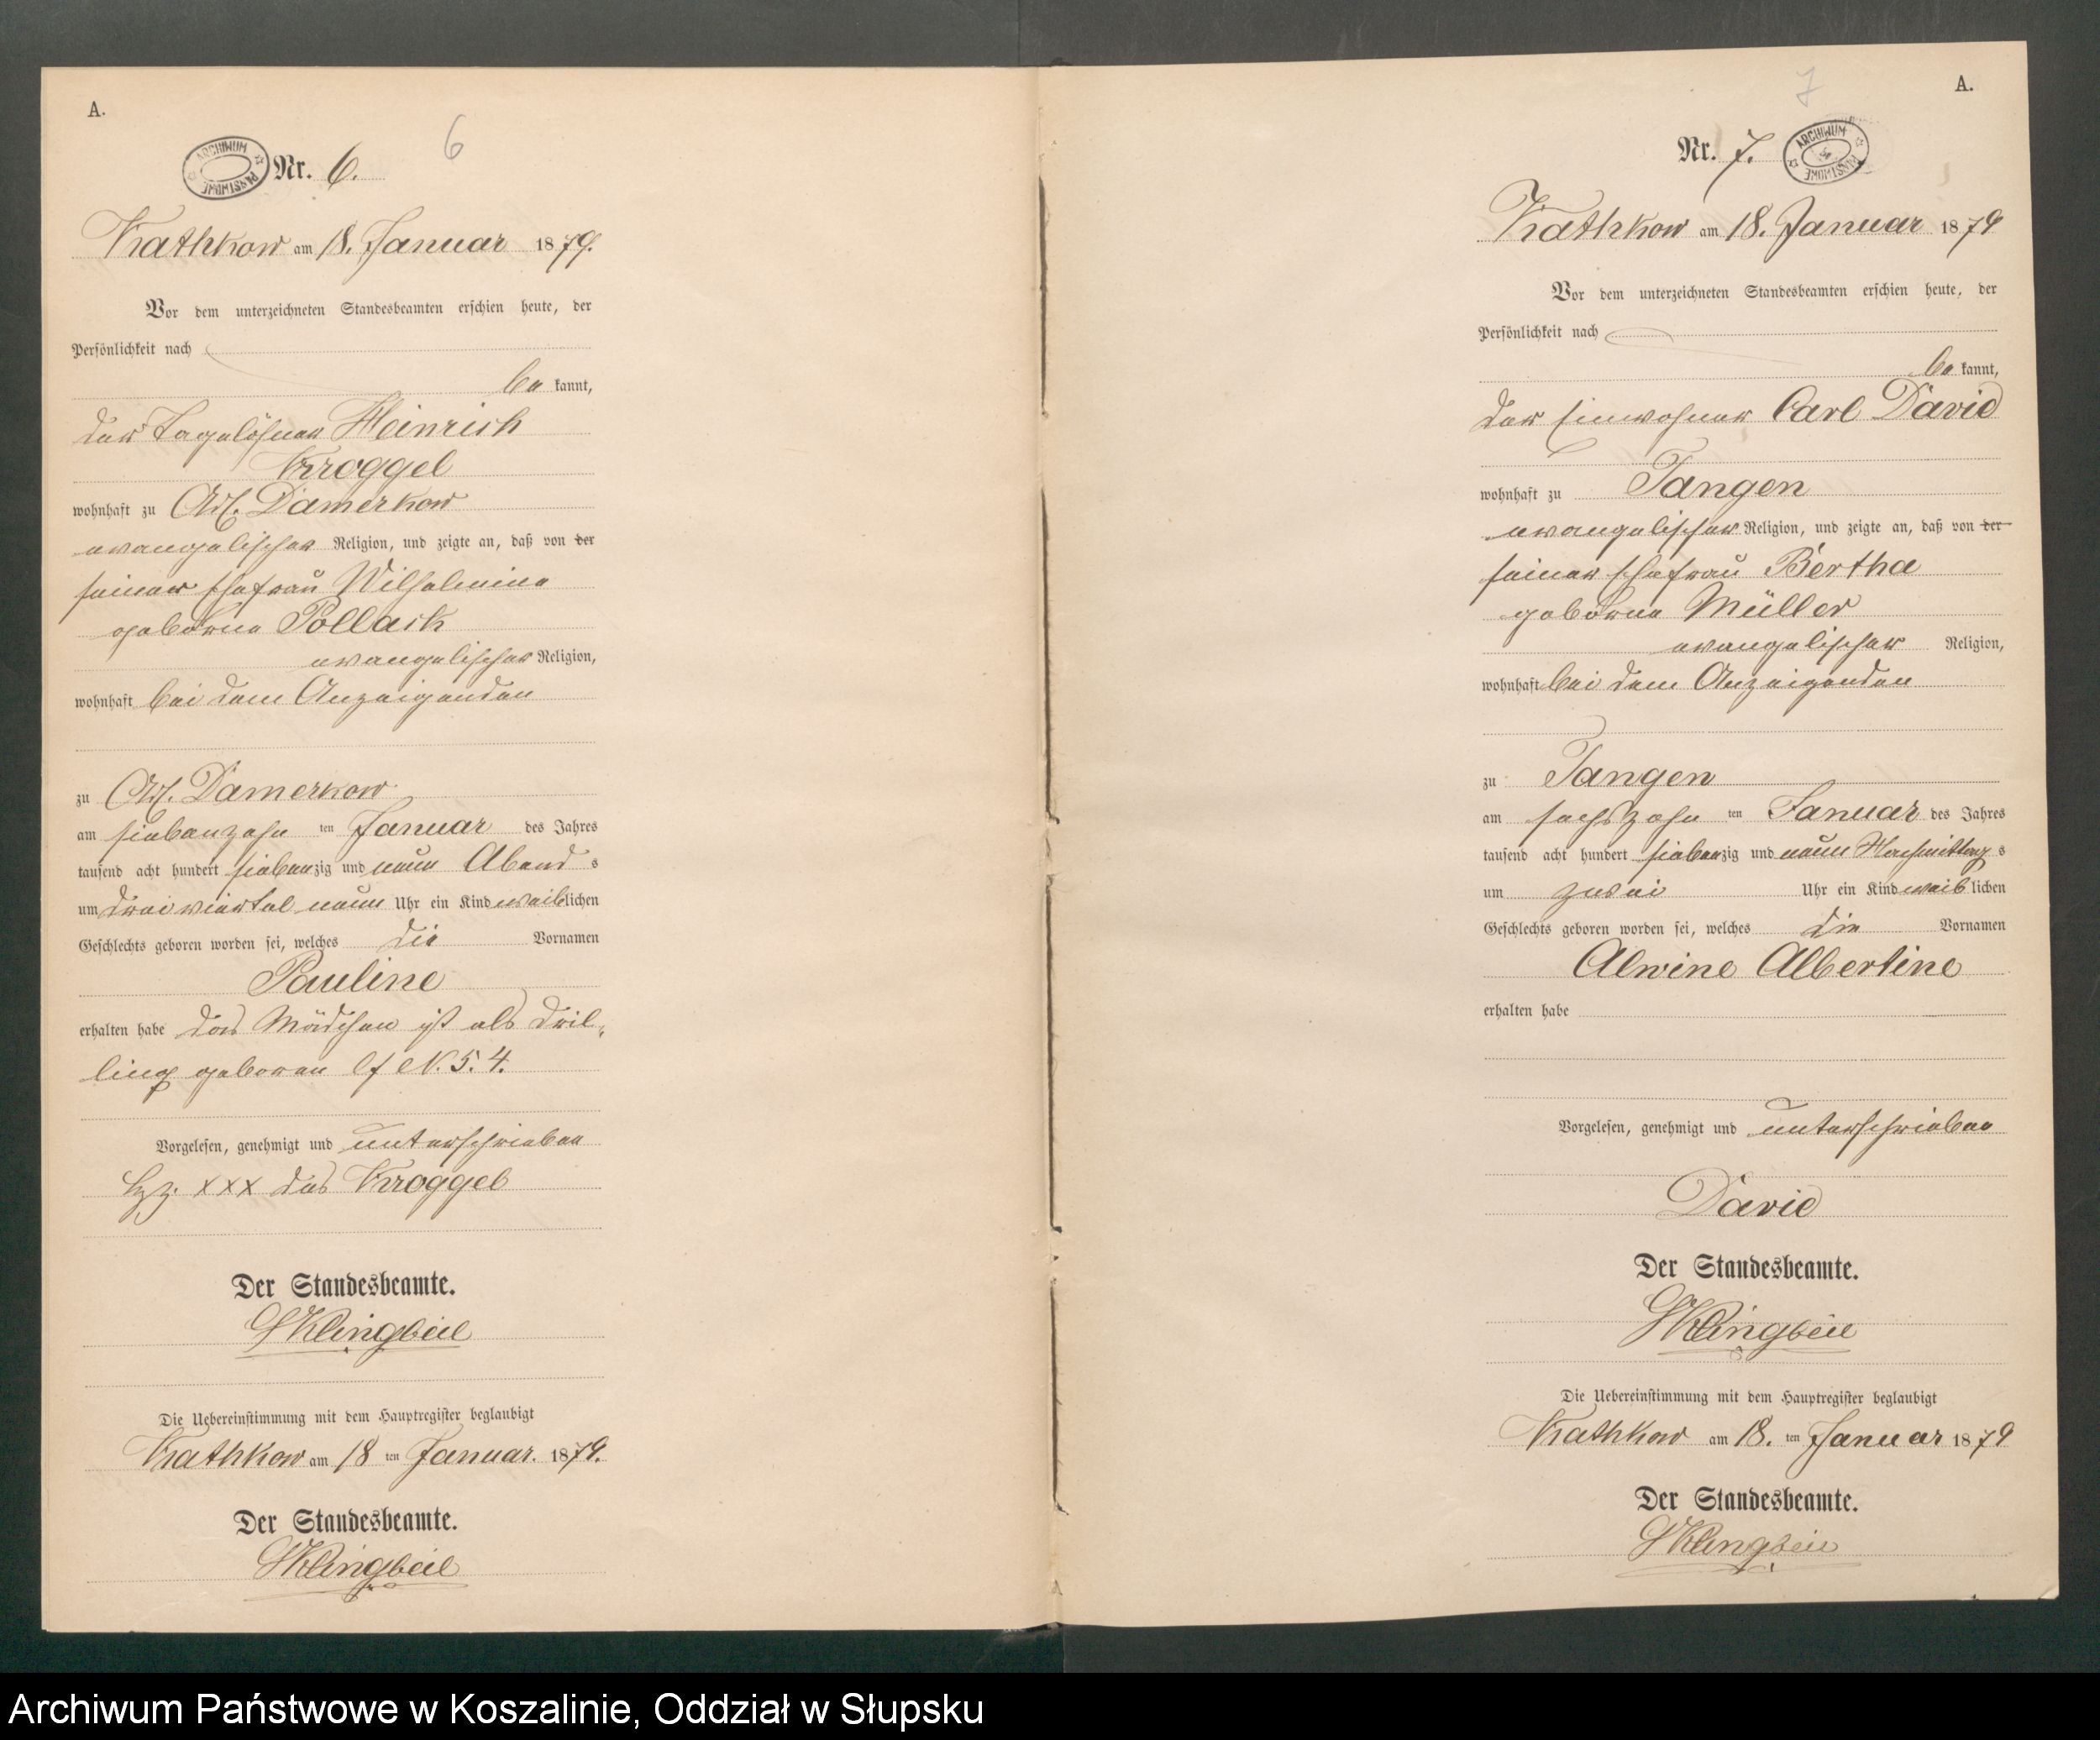 A.
ARCHIWUM PAŃSTWOWE
Nr. 6.
6
Krathkow am 18. Januar 1879.
Vor dem unterzeichneten Standesbeamten erschien heute, der
Persönlichkeit nach
be kannt,
der Tagelöhner Heinrich
Kroggel
wohnhaft zu Adl. Damerkow
evangelischer Religion, und zeigte an, daß von der
seiner Ehefrau Wilhelmine
geborne Pollack
evangelischer Religion,
wohnhaft bei dem Anzeigenden
zu Adl. Damerkow
am siebenzehn ten Januar des Jahres
tausend acht hundert siebenzig und neun Abend s
um drei viertel neun Uhr ein Kind weiblichen
Geschlechts geboren worden sei, welches die Vornamen
Pauline
erhalten habe das Mädchen ist als Dril-
ling geboren cf N. 5. 4.
Vorgelesen, genehmigt und unterschrieben
Hz. XXX des Kroggel
Der Standesbeamte.
Klingbeil
Die Uebereinstimmung mit dem Hauptregister beglaubigt
Krathkow am 18 ten Januar. 1879.
Der Standesbeamte.
Klingbeil
7
A.
Nr. 7.
ARCHIWUM PAŃSTWOWE
Krathkow am 18. Januar 1879
Vor dem unterzeichneten Standesbeamten erschien heute, der
Persönlichkeit nach
be kannt,
der Einwohner Carl David
wohnhaft zu Tangen
evangelischer Religion, und zeigte an, daß von der
seiner Ehefrau Bertha
geborne Müller
evangelischer Religion,
wohnhaft bei dem Anzeigenden
zu Tangen
am sechszehn ten Januar des Jahres
tausend acht hundert siebenzig und neun Nachmittag s
um zwei Uhr ein Kind weiblichen
Geschlechts geboren worden sei, welches die Vornamen
Alwine Albertine
erhalten habe
Vorgelesen, genehmigt und unterschrieben
David
Der Standesbeamte.
Klingbeil
Die Uebereinstimmung mit dem Hauptregister beglaubigt
Krathkow am 18. ten Januar 1879
Der Standesbeamte.
Klingbeil
Archiwum Państwowe w Koszalinie, Oddział w Słupsku